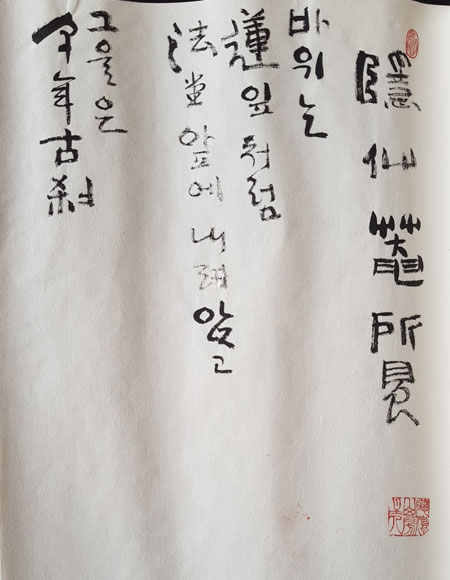 隱仙菴所見
바위는
蓮잎처럼
法堂앞에 내려앉고
그을은
千年古刹